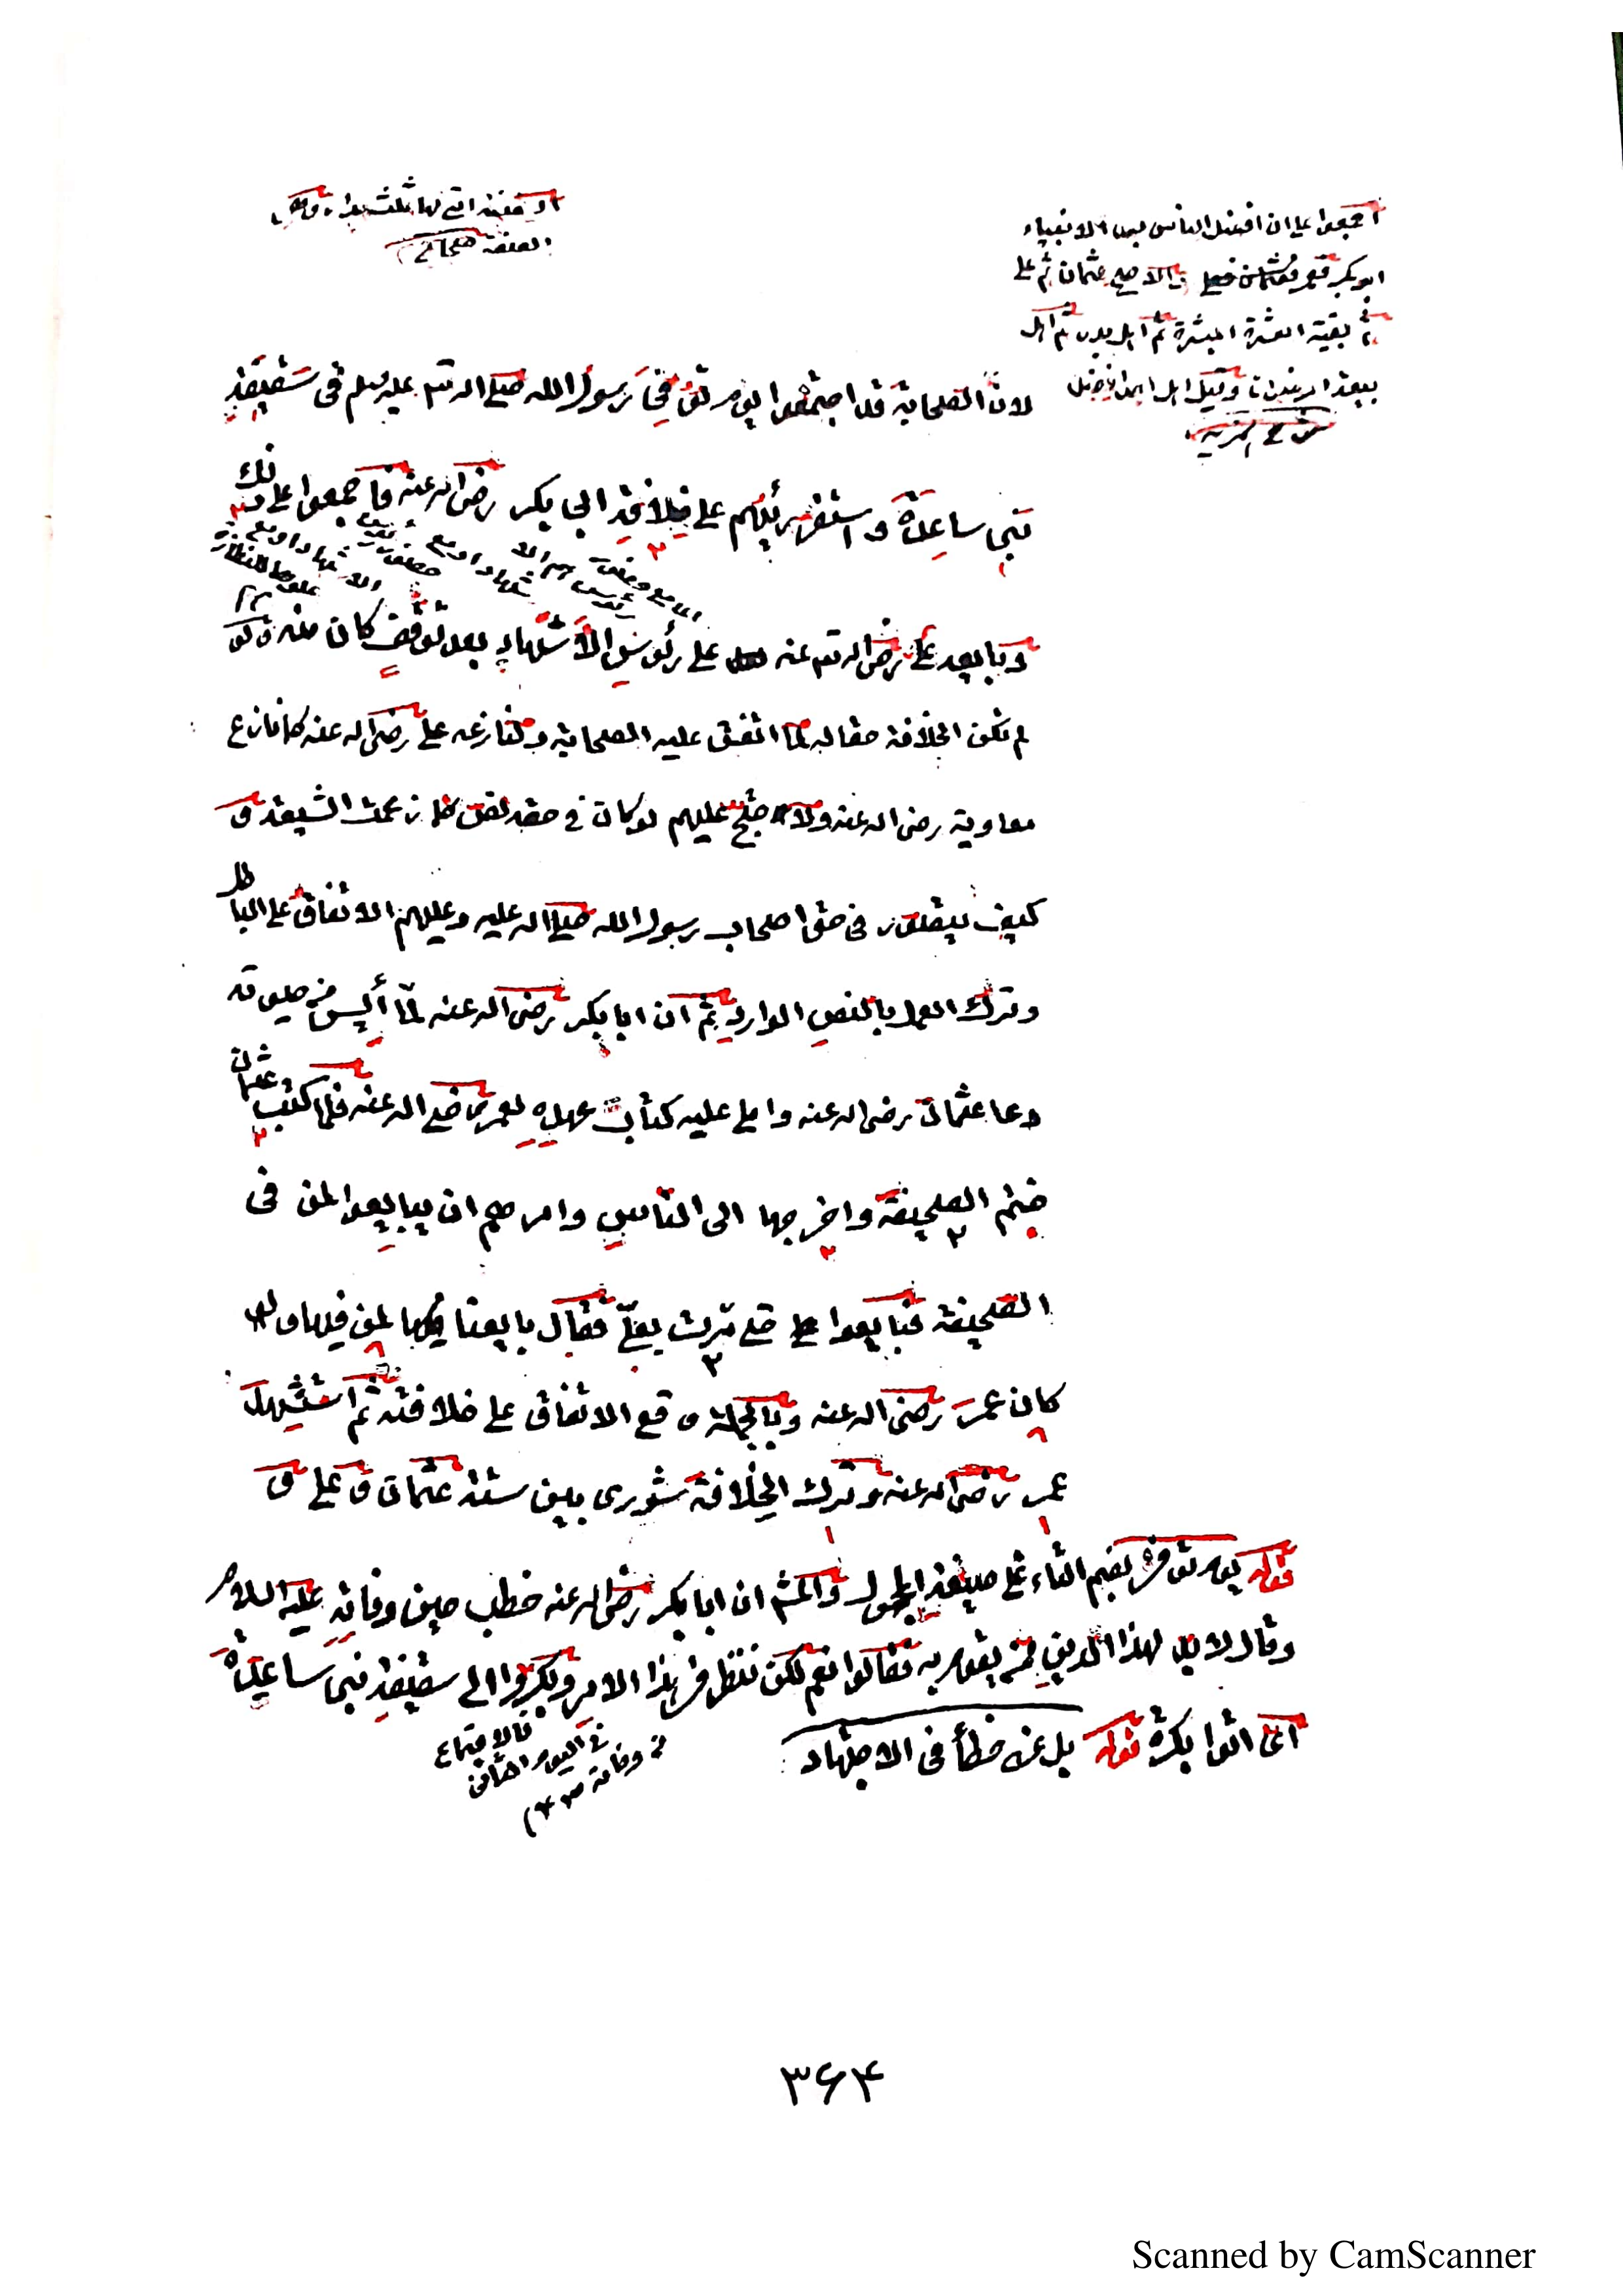 اجمعوا على ان افضل الناس بعد الانبياء
ابو بكر ثم عثمان ثم على
ثم بقية العشرة المبشرة ثم اهل بدر ثم اهل
بيعة الرضوان وقيل اهل احد افضل
لان الصحابة قد اجتمعوا يوم توفى رسول الله صلى الله تعـ عليه وسلم فى سقيفة
بنى ساعدة واستقر رأيهم على خلافة ابى بكر رضى الله عنه فاجمعوا على ذلك
وبايعه على رضى الله تعـ عنه على رؤس الاشهاد بعد توقف كان منه ولو
لم تكن الخلافة حقا له لما اتفق عليه الصحابة ولنازعه على رضى الله عنه كما نازع
معاوية رضى الله عنه ولاحتج عليهم لو كان فى حقه نص كما زعمت الشيعة و
كيف يتصور فى حق اصحاب رسول الله صلى الله عليه وعليهم الاتفاق على الباطل
وترك العمل بالنص الوارد ثم ان ابا بكر رضى الله عنه لما أيس من حيوته
دعا عثمان رضى الله عنه واملى عليه كتاب عهده لعمر رضى الله عنه فلما كتب عثمان
ختم الصحيفة واخرجها الى الناس وامرهم ان يبايعوا لمن فى
الصحيفة فبايعوا حتى مرت بعلى فقال بايعنا لمن فيها وان
كان عمر رضى الله عنه وبالجملة وقع الاتفاق على خلافته ثم استشهد
عمر رضى الله عنه وترك الخلافة شورى بين ستة عثمان و على و
قوله يوم توفى بضم التاء على صيغة المجهول والمشهور ان ابا بكر رضى الله عنه خطب حين وفاته عليه السلام
وقال لا بد لهذا الدين ممن يقوم به فقالوا نعم لكن ننظر فى هذا الامر وبكروا الى سقيفة بنى ساعدة
اى اتوا بكرة قوله بل عن خطأ فى الاجتهاد
فالاجتماع
فى اليوم الثانى
من وفاته
٣٦٤
Scanned by CamScanner